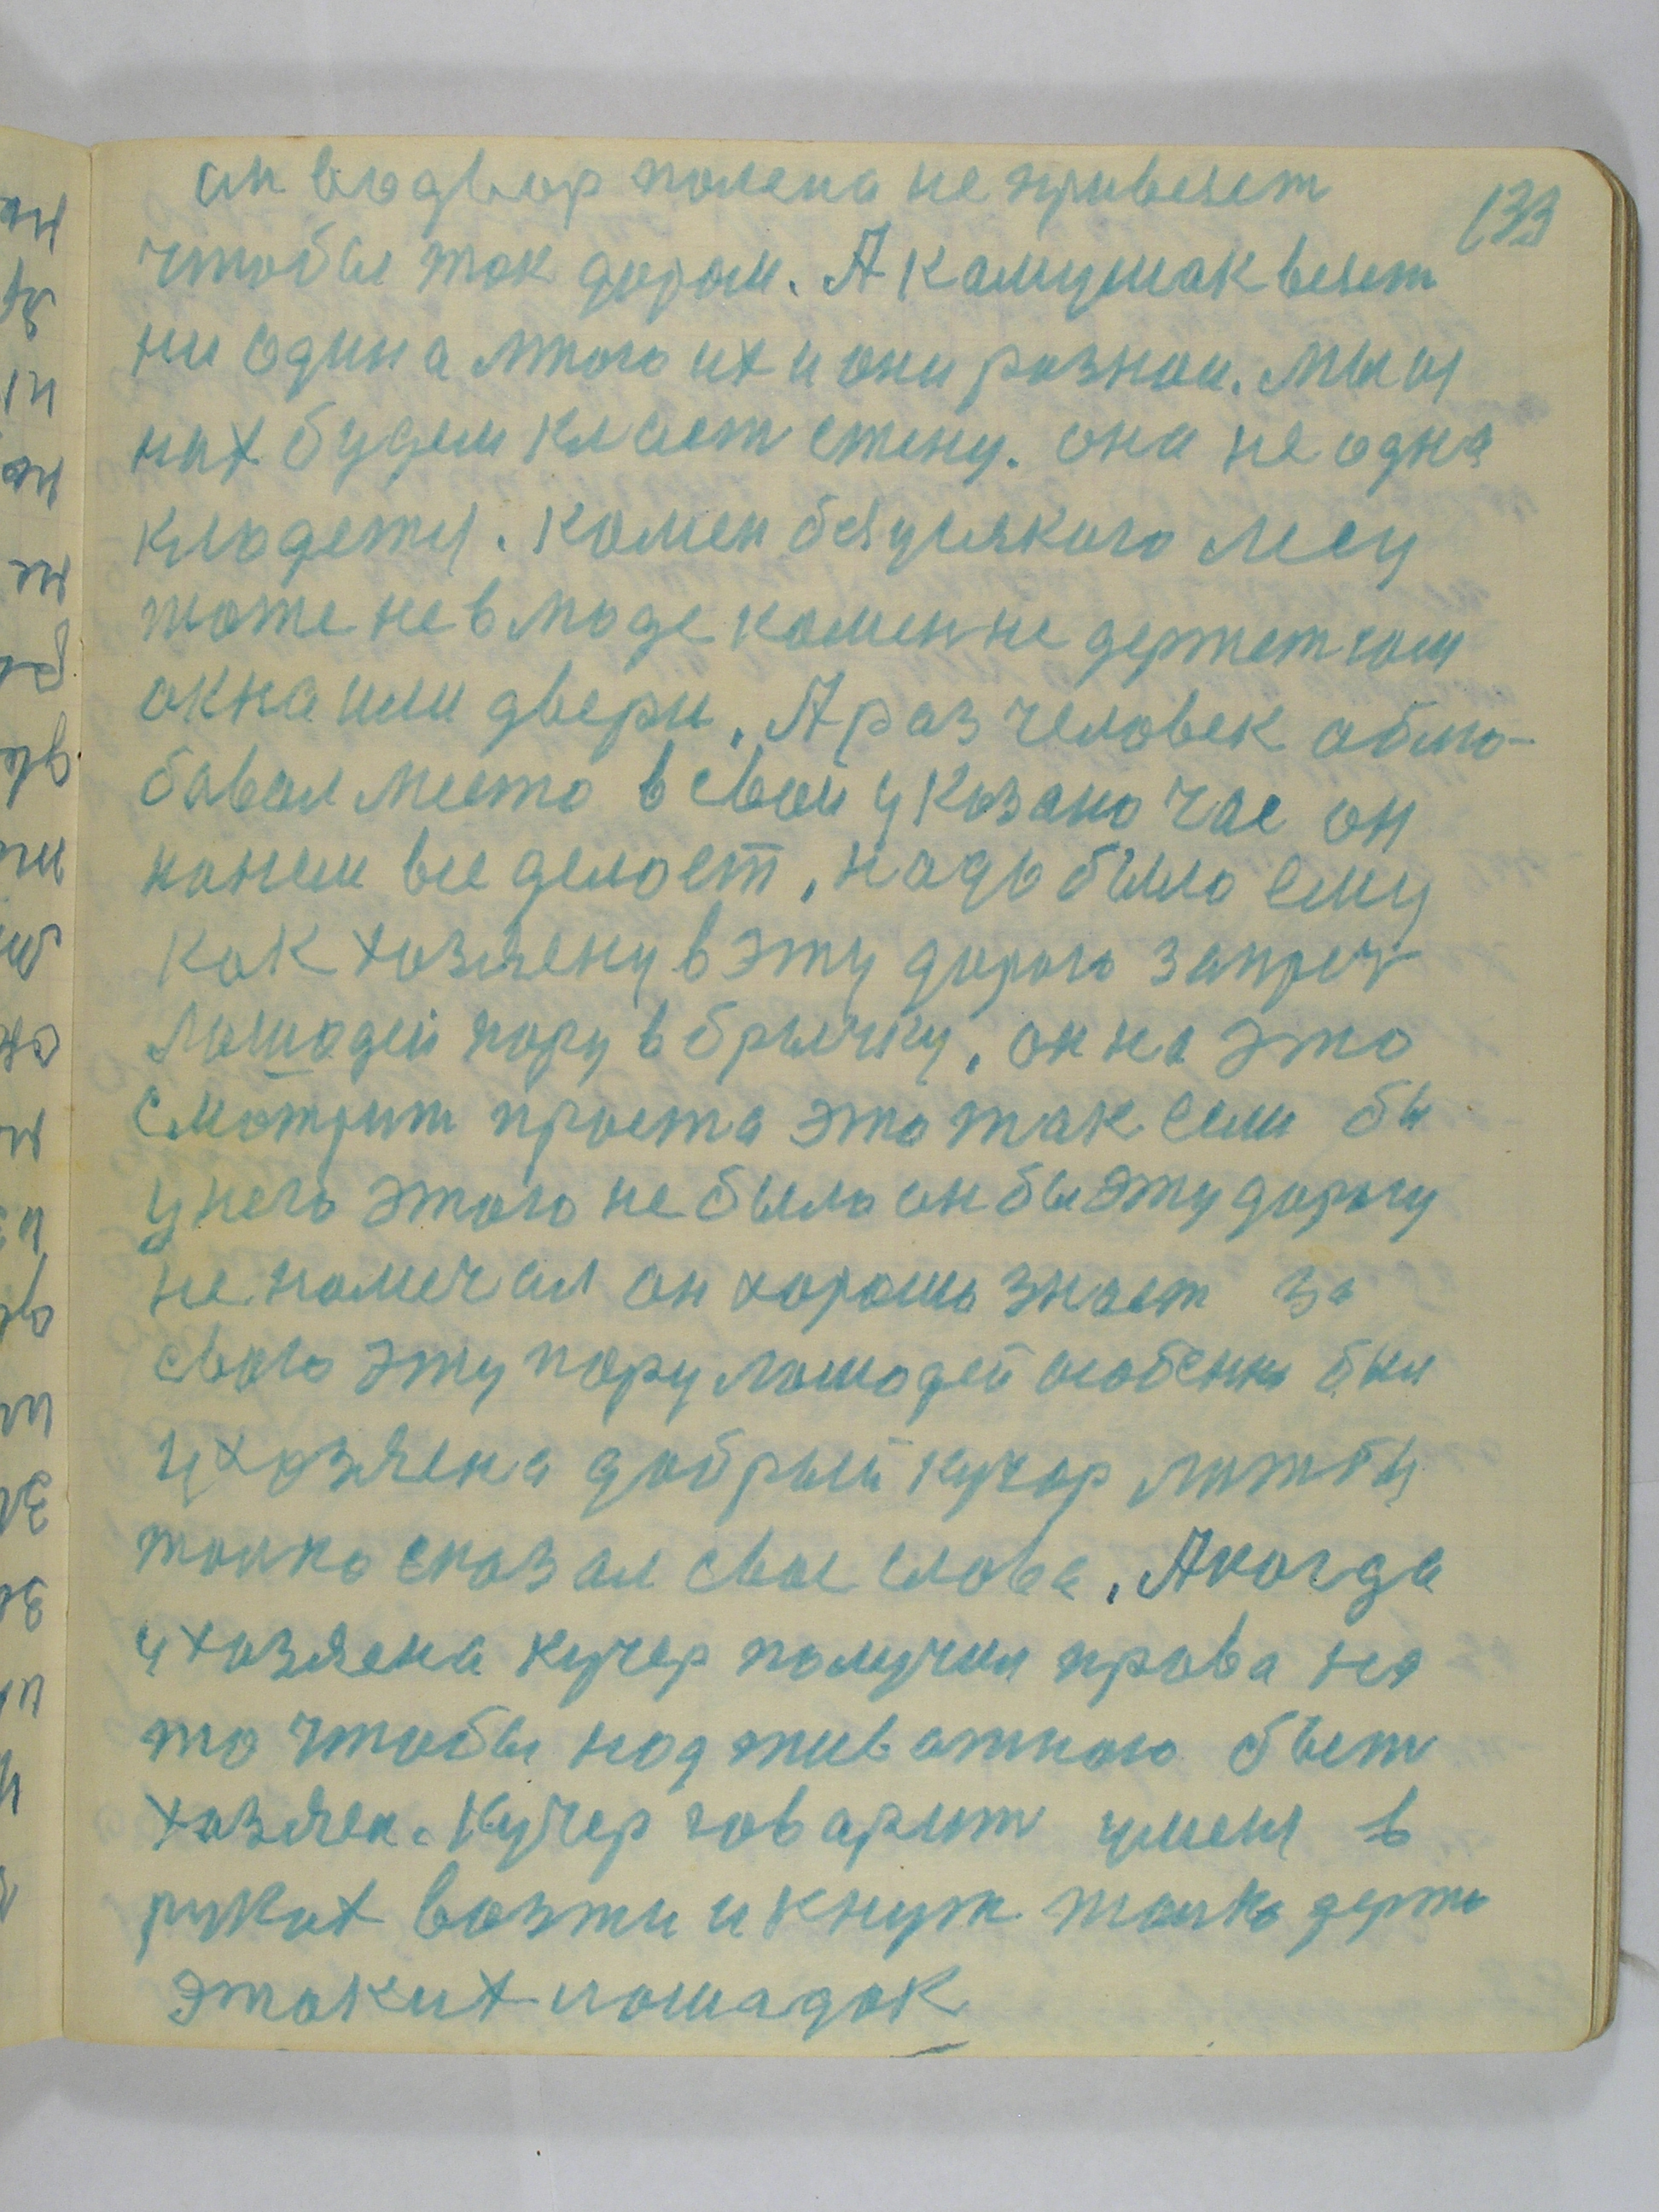 133
он водвор полена не привезет
чтобы так даром. А камушак везет
ни один а много их и они разнаи. Мы из
них будем класт стену. она не одна
кладетя. Камен безусякого лесу
тоже не в моде камен не держет там
окна или двери. А раз человек облю-
бавал место в свой указано час он
на нем все делает, надо было ему
как хозяену в эту дорого запреч
лошадей пору в брычку, он на это
смотрит проста это так если бы
у него этого не было он бы эту дорогу
не намечал он хорошо знает за
свого эту пару лошадей особенно был
у хозяена добрый кучар
только сказал свое слова. А когда
у хозяена кучер получил права на
то чтобы над животною бытт
хозяен. Кучер говарит у меня в
руках возжи и кнут толко держ
этаких лошадок